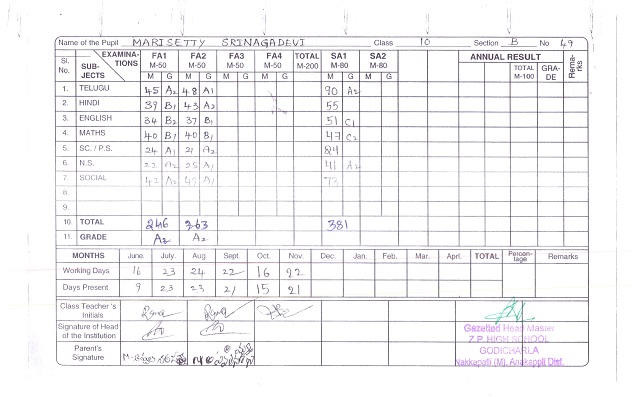 Name of the Pupil MARISETTY SRINAGADEVI Class 10 Section B No 49
Sl. No. EXAMINATIONS SUB-JECTS FA1 M-50 FA2 M-50 FA3 M-50 FA4 M-50 TOTAL M-200 SA1 M-80 SA2 M-80 ANNUAL RESULT TOTAL M-100 GRA-DE Rema-rks
M G M G M G M G M G M G M G
1. TELUGU 45 A2 48 A1 90 A2
2. HINDI 39 B1 43 A2 55
3. ENGLISH 34 B2 37 B1 51 C1
4. MATHS 40 B1 40 B1 47 C2
5. SC. / P.S. 24 A1 21 A2
6. N.S. 22 A2 25 A1 41 A2
7. SOCIAL 42 A2 A1 73
8.
9.
10. TOTAL 246 263 381
11. GRADE A2 A2
MONTHS June. July. Aug. Sept. Oct. Nov. Dec. Jan. Feb. Mar. Aprl. TOTAL Percen-tage Remarks
Working Days 16 23 24 22 16 22
Days Present 9 23 23 21 15 21
Class Teacher's Initials
Signature of Head of the Institution
Parent's Signature
Gazetted Head Master
Z.P. HIGH SCHOOL
GODICHARLA
Nakkapalli (M), Anakappli Dist.